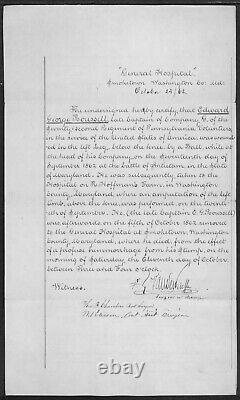 General Hospital,
Smoketown Washington Co: Md:
October 24/62
The undersigned hereby certify, that Edward
George Roussell late Captain of Company G. of the
Seventy-second Regiment of Pennsylvania Volunteers,
in the service of the United States of America was wound-
ed in the left Leg, below the knee, by a Ball, while at
the head of his company, on the seventeenth day of
September 1862 at the battle of Antietam in the State
of Maryland. He was subsequently taken to the
Hospital on R. Hoffman's Farm, in Washington
County, Maryland, where an amputation of the left
limb, above the knee, was performed, on the twenty
ninth of September. He, (the late Captain E G Roussell)
was afterwards, on the fifth of October 1862 removed
to the General Hospital at Smoketown, Washington
County, Maryland, where he died, from the effect
of a profuse hemorrhage from his stump, on the
morning of Saturday, the Eleventh day of October,
between Three and Four o'clock.
Witness.
Surgeon in charge
Surgeon